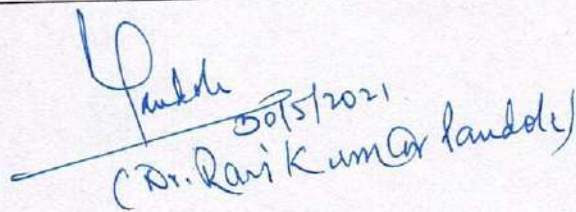 Pandole
30/5/2021
(Dr. Ravi Kumar Pandole)